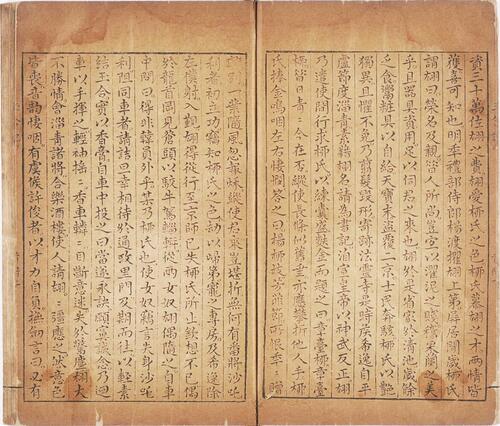 資三十萬佐翃之費翃愛柳氏之色柳氏慕翃之才兩情皆
獲喜可知也明年禮部侍郎楊渡擢翃上第屏居間歲柳氏
謂翃曰榮名及親昔人所尚豈宜以濯浣之賤稽采蘭之美
乎且器具資用足以伺君之來也翃於是省家於清池歲餘
乏食鬻粧具以自給天寶末盜覆二京士民奔駭柳氏以艷
獨異且懼不免乃剪髮毀形寄跡法靈寺是時侯希逸自平
盧節度淄青素藉翃名請為書記洎宣皇帝以神武反正翃
乃遣使間行求柳氏以練囊盛麩金而題之曰章臺柳章臺
柳昔日青〻今在否縱使長條似舊垂亦應攀折他人手柳
氏捧金嗚咽左右悽憫答之曰楊柳枝芳菲節所恨年〻贈
離別一葉隨風忽報秋縱使君來豈堪折無何有蕃將沙吒
利者初立功竊知柳氏之色劫以歸第寵之專房及希逸除
左僕射入覲翃得從行至京師已失柳氏所止歎想不已偶
於龍首岡見蒼頭以駁牛駕輜軿從兩女奴翃偶隨之自車
中問曰得非韓員外乎某乃柳氏也使女奴竊言失身沙吒
利阻同車者請詰旦幸相待於道政里門及期而往以輕素
結玉合實以香膏自車中授之曰當遂永訣願寘誠念乃迴
車以手揮之輕袖搖〻香車轔〻目斷意迷失於驚塵翃大
不勝情會淄青諸將合樂酒樓使人請翃〻強應之然意色
皆喪音韻悽咽有虞候許俊者以才力自負撫劍言曰必有